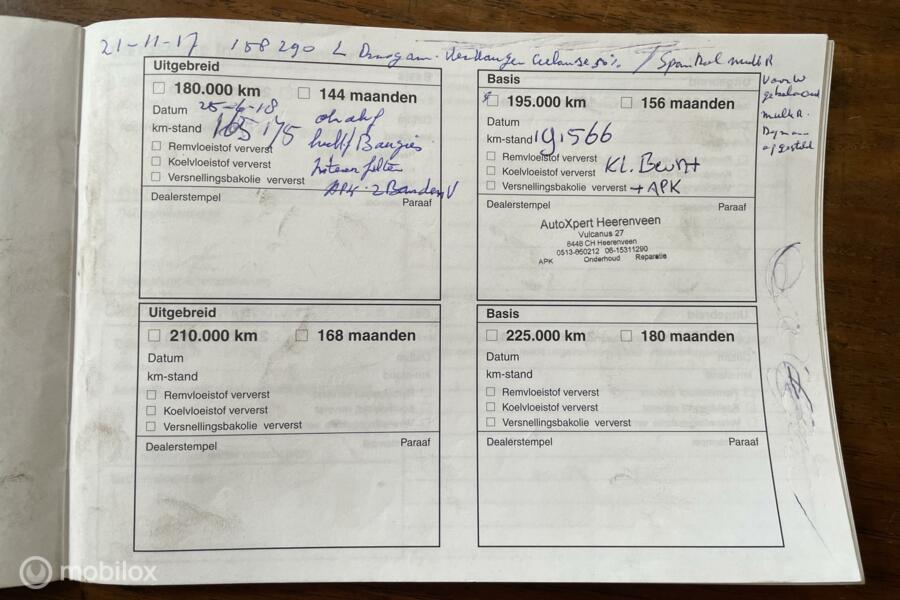 21-11-17 158290 L
Uitgebreid
180.000 km 144 maanden
Datum 25-6-18
km-stand 165175
Remvloeistof ververst
Koelvloeistof ververst
Versnellingsbakolie ververst
olie
Bougies
filter
APK. 2 Banden V
Dealerstempel Paraaf
Basis
195.000 km 156 maanden
Datum
km-stand 191566
Remvloeistof ververst
Koelvloeistof ververst
Versnellingsbakolie ververst
KL. Beurt
+ APK
Dealerstempel Paraaf
AutoXpert Heerenveen
Vulcanus 27
8448 CH Heerenveen
0513-650212 06-15311290
APK Onderhoud Reparatie
Uitgebreid
210.000 km 168 maanden
Datum
km-stand
Remvloeistof ververst
Koelvloeistof ververst
Versnellingsbakolie ververst
Dealerstempel Paraaf
Basis
225.000 km 180 maanden
Datum
km-stand
Remvloeistof ververst
Koelvloeistof ververst
Versnellingsbakolie ververst
Dealerstempel Paraaf
mobilox